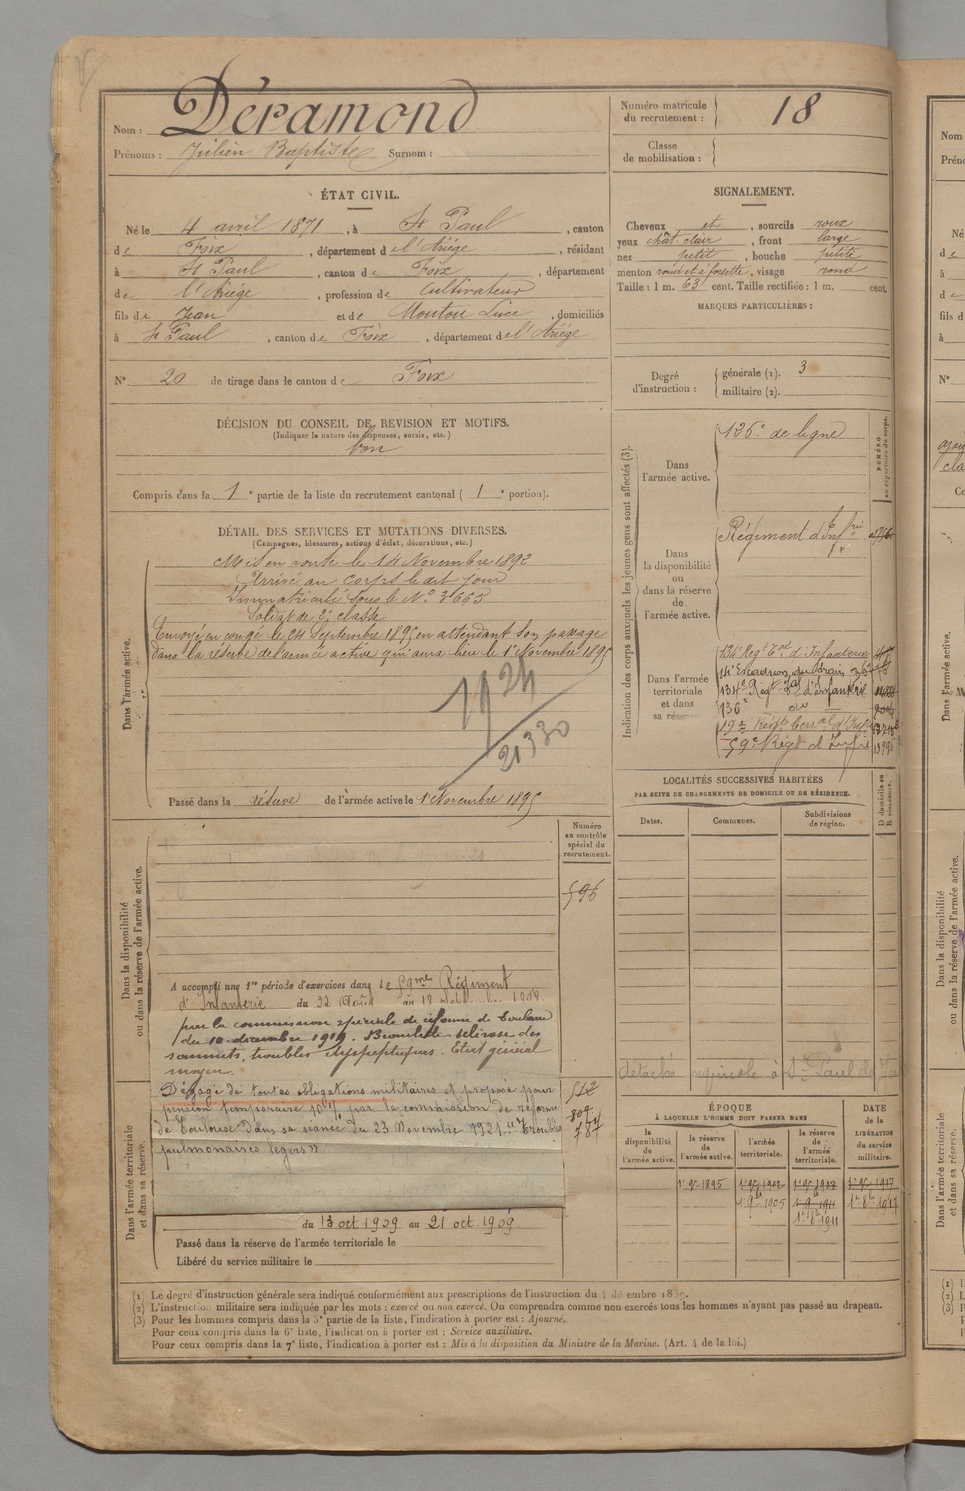 Nom : Déramond
Prénoms : Julien Baptiste Surnom :
Numéro matricule du recrutement : 18
Classe de mobilisation :
ÉTAT CIVIL.
Né le 4 avril 1871, à St Paul, canton
de Foix, département de l'Ariège, résidant
à St Paul, canton de Foix, département
de l'Ariège, profession de Cultivateur
fils de Jean et de Mouton Luce, domiciliés
à St Paul, canton de Foix, département de l'Ariège
N° 20 de tirage dans le canton de Foix
SIGNALEMENT.
Cheveux et, sourcils roux
yeux chât. clair, front large
nez petit, bouche petite
menton rond et à fossette, visage rond
Taille : 1 m. 63 cent. Taille rectifiée : 1 m. cent.
MARQUES PARTICULIÈRES :
Degré d'instruction : générale (1). 3
militaire (2).
DÉCISION DU CONSEIL DE REVISION ET MOTIFS.
(Indiquer la nature des dispenses, sursis, etc.)
bon
Compris dans la 1e partie de la liste du recrutement cantonal ( 1e portion).
DÉTAIL DES SERVICES ET MUTATIONS DIVERSES.
(Campagnes, blessures, actions d'éclat, décorations, etc.)
Dans l'armée active.
Mis en route le 14 Novembre 1892
Arrivé au corps le dit jour
Immatriculé sous le N° 3665
Soldat de 2e classe
Envoyé en congé le 24 Septembre 1895 en attendant son passage
dans la réserve de l'armée active qui aura lieu le 1er Novembre 1895
1924
21330
Passé dans la réserve de l'armée active le 1er Novembre 1895
Indication des corps auxquels les jeunes gens sont affectés (3).
NUMÉRO au répertoire du corps.
Dans l'armée active.
126e de ligne
Dans la disponibilité ou dans la réserve de l'armée active.
Régiment d'Inf
Dans l'armée territoriale et dans sa réserve
134e Régt Tal d'Infanterie
14e Escadron du train
134e Régt Tal d'Infanterie
136e do
19e Régt Terral d'Inf
59e Régt d'Infie
LOCALITÉS SUCCESSIVES HABITÉES
PAR SUITE DE CHANGEMENTS DE DOMICILE OU DE RÉSIDENCE.
Dates. Communes. Subdivisions de région. D domicile ou R résidence.
détaché agricole à St Paul de
Dans la disponibilité ou dans la réserve de l'armée active.
Numéro au contrôle spécial du recrutement.
596
A accompli une 1re période d'exercices dans le 59me Régiment
d'Infanterie du 22 Août au 18
par la commission spéciale de réforme de Toulouse
du 10 décembre 1919. Bronchite sclérose des
sommets, troubles dyspeptiques. Etat général
moyen.
Dans l'armée territoriale et dans sa réserve.
Dégagé de toutes obligations militaires et proposé pour
pension temporaire 10 % par la commission de réforme
de Toulouse dans sa séance du 23 Novembre 1921 "Troubles
pulmonaires légers"
512
809
du 13 oct 1909 au 21 oct. 1909
Passé dans la réserve de l'armée territoriale le
Libéré du service militaire le
ÉPOQUE
À LAQUELLE L'HOMME DOIT PASSER DANS
DATE de la LIBÉRATION du service militaire.
la disponibilité de l'armée active. la réserve de l'armée active. l'armée territoriale. la réserve de l'armée territoriale.
1er 9bre 1895
1er 9bre 1905 1er 9bre 1911
1er 8bre 1911
(1) Le degré d'instruction générale sera indiqué conformément aux prescriptions de l'instruction du
(2) L'instruction militaire sera indiquée par les mots : exercé ou non exercé. On comprendra comme non exercés tous les hommes n'ayant pas passé au drapeau.
(3) Pour les hommes compris dans la 5e partie de la liste, l'indication à porter est : Ajourné.
Pour ceux compris dans la 6e liste, l'indication à porter est : Service auxiliaire.
Pour ceux compris dans la 7e liste, l'indication à porter est : Mis à la disposition du Ministre de la Marine. (Art. 4 de la loi.)